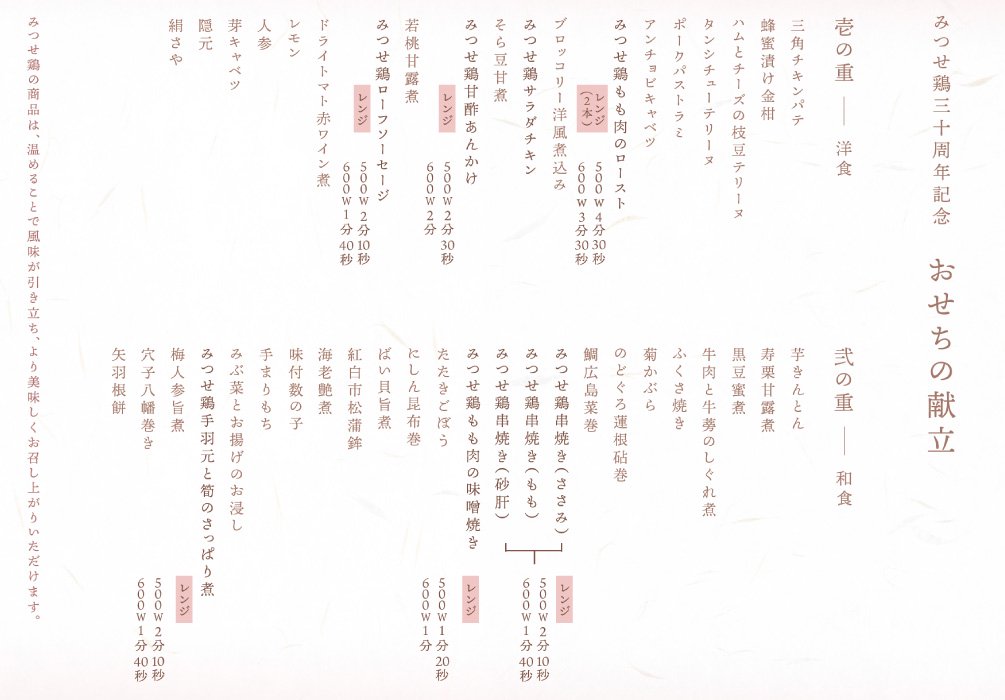 みつせ鶏三十周年記念 おせちの献立
壱の重 ── 洋食
三角チキンパテ
蜂蜜漬け金柑
ハムとチーズの枝豆テリーヌ
タンシチューテリーヌ
ポークパストラミ
アンチョビキャベツ
みつせ鶏もも肉のロースト
レンジ(2本)
500W 4分30秒
600W 3分30秒
ブロッコリー洋風煮込み
みつせ鶏サラダチキン
そら豆甘煮
みつせ鶏甘酢あんかけ
レンジ
500W 2分30秒
600W 2分
若桃甘露煮
みつせ鶏ローフソーセージ
レンジ
500W 2分10秒
600W 1分40秒
ドライトマト赤ワイン煮
レモン
人参
芽キャベツ
隠元
絹さや
弐の重 ── 和食
芋きんとん
寿栗甘露煮
黒豆蜜煮
牛肉と牛蒡のしぐれ煮
ふくさ焼き
菊かぶら
のどぐろ蓮根砧巻
鯛広島菜巻
みつせ鶏串焼き(ささみ)
みつせ鶏串焼き(もも)
みつせ鶏串焼き(砂肝)
レンジ
500W 2分10秒
600W 1分40秒
みつせ鶏もも肉の味噌焼き
レンジ
500W 1分20秒
600W 1分
たたきごぼう
にしん昆布巻
ばい貝旨煮
紅白市松蒲鉾
海老艶煮
味付数の子
手まりもち
みぶ菜とお揚げのお浸し
みつせ鶏手羽元と筍のさっぱり煮
レンジ
500W 2分10秒
600W 1分40秒
梅人参旨煮
穴子八幡巻き
矢羽根餅
みつせ鶏の商品は、温めることで風味が引き立ち、より美味しくお召し上がりいただけます。